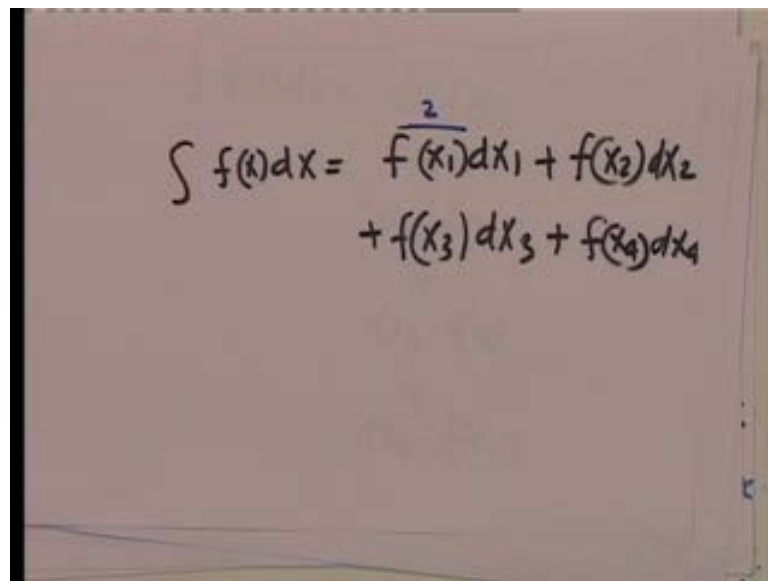 2
∫ f(x)dx = f(x₁)dx₁ + f(x₂)dx₂
+ f(x₃)dx₃ + f(x₄)dx₄